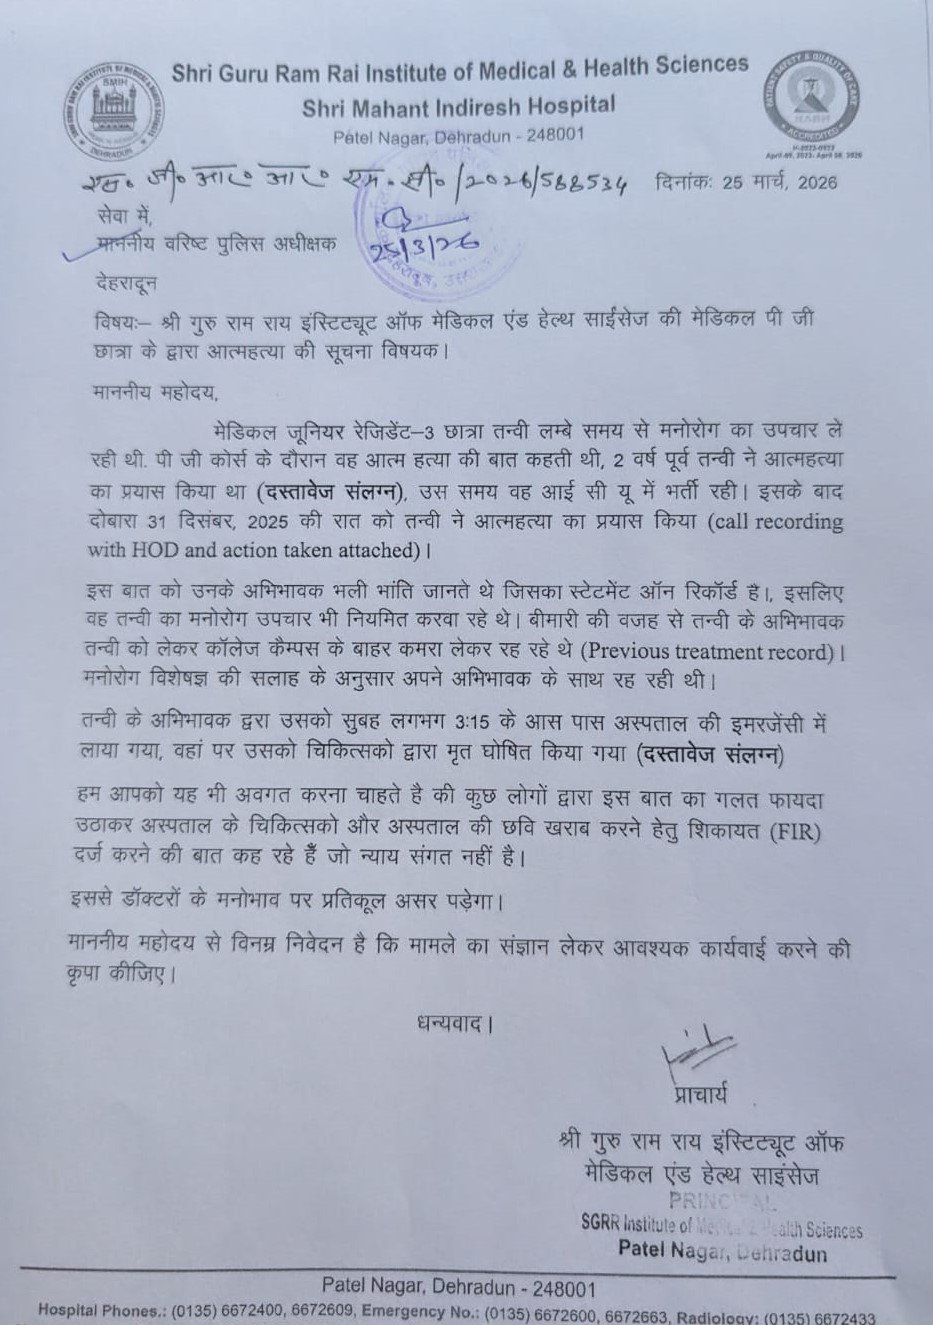 Shri Guru Ram Rai Institute of Medical & Health Sciences
Shri Mahant Indiresh Hospital
Patel Nagar, Dehradun - 248001
SMIH
DEHRADUN
ACCREDITED
H-2023-0923
April 09, 2023- April 08, 2026
एस. जी. आर. आर. एम. सी. /2026/588534 दिनांकः 25 मार्च, 2026
सेवा में,
माननीय वरिष्ट पुलिस अधीक्षक
25/3/26
देहरादून
विषयः– श्री गुरु राम राय इंस्टिट्यूट ऑफ मेडिकल एंड हेल्थ साईंसेज की मेडिकल पी जी
छात्रा के द्वारा आत्महत्या की सूचना विषयक।
माननीय महोदय,
मेडिकल जूनियर रेजिडेंट–3 छात्रा तन्वी लम्बे समय से मनोरोग का उपचार ले
रही थी. पी जी कोर्स के दौरान वह आत्म हत्या की बात कहती थी, 2 वर्ष पूर्व तन्वी ने आत्महत्या
का प्रयास किया था (दस्तावेज संलग्न), उस समय वह आई सी यू में भर्ती रही। इसके बाद
दोबारा 31 दिसंबर, 2025 की रात को तन्वी ने आत्महत्या का प्रयास किया (call recording
with HOD and action taken attached)।
इस बात को उनके अभिभावक भली भांति जानते थे जिसका स्टेटमेंट ऑन रिकॉर्ड है।, इसलिए
वह तन्वी का मनोरोग उपचार भी नियमित करवा रहे थे। बीमारी की वजह से तन्वी के अभिभावक
तन्वी को लेकर कॉलेज कैम्पस के बाहर कमरा लेकर रह रहे थे (Previous treatment record)।
मनोरोग विशेषज्ञ की सलाह के अनुसार अपने अभिभावक के साथ रह रही थी।
तन्वी के अभिभावक द्वरा उसको सुबह लगभग 3:15 के आस पास अस्पताल की इमरजेंसी में
लाया गया, वहां पर उसको चिकित्सको द्वारा मृत घोषित किया गया (दस्तावेज संलग्न)
हम आपको यह भी अवगत करना चाहते है की कुछ लोगों द्वारा इस बात का गलत फायदा
उठाकर अस्पताल के चिकित्सको और अस्पताल की छवि खराब करने हेतु शिकायत (FIR)
दर्ज करने की बात कह रहे हैं जो न्याय संगत नहीं है।
इससे डॉक्टरों के मनोभाव पर प्रतिकूल असर पड़ेगा।
माननीय महोदय से विनम्र निवेदन है कि मामले का संज्ञान लेकर आवश्यक कार्यवाई करने की
कृपा कीजिए।
धन्यवाद।
प्राचार्य
श्री गुरु राम राय इंस्टिट्यूट ऑफ
मेडिकल एंड हेल्थ साइंसेज
PRINCIPAL
SGRR Institute of Medical & Health Sciences
Patel Nagar, Dehradun
Patel Nagar, Dehradun - 248001
Hospital Phones.: (0135) 6672400, 6672609, Emergency No.: (0135) 6672600, 6672663, Radiology: (0135) 6672433